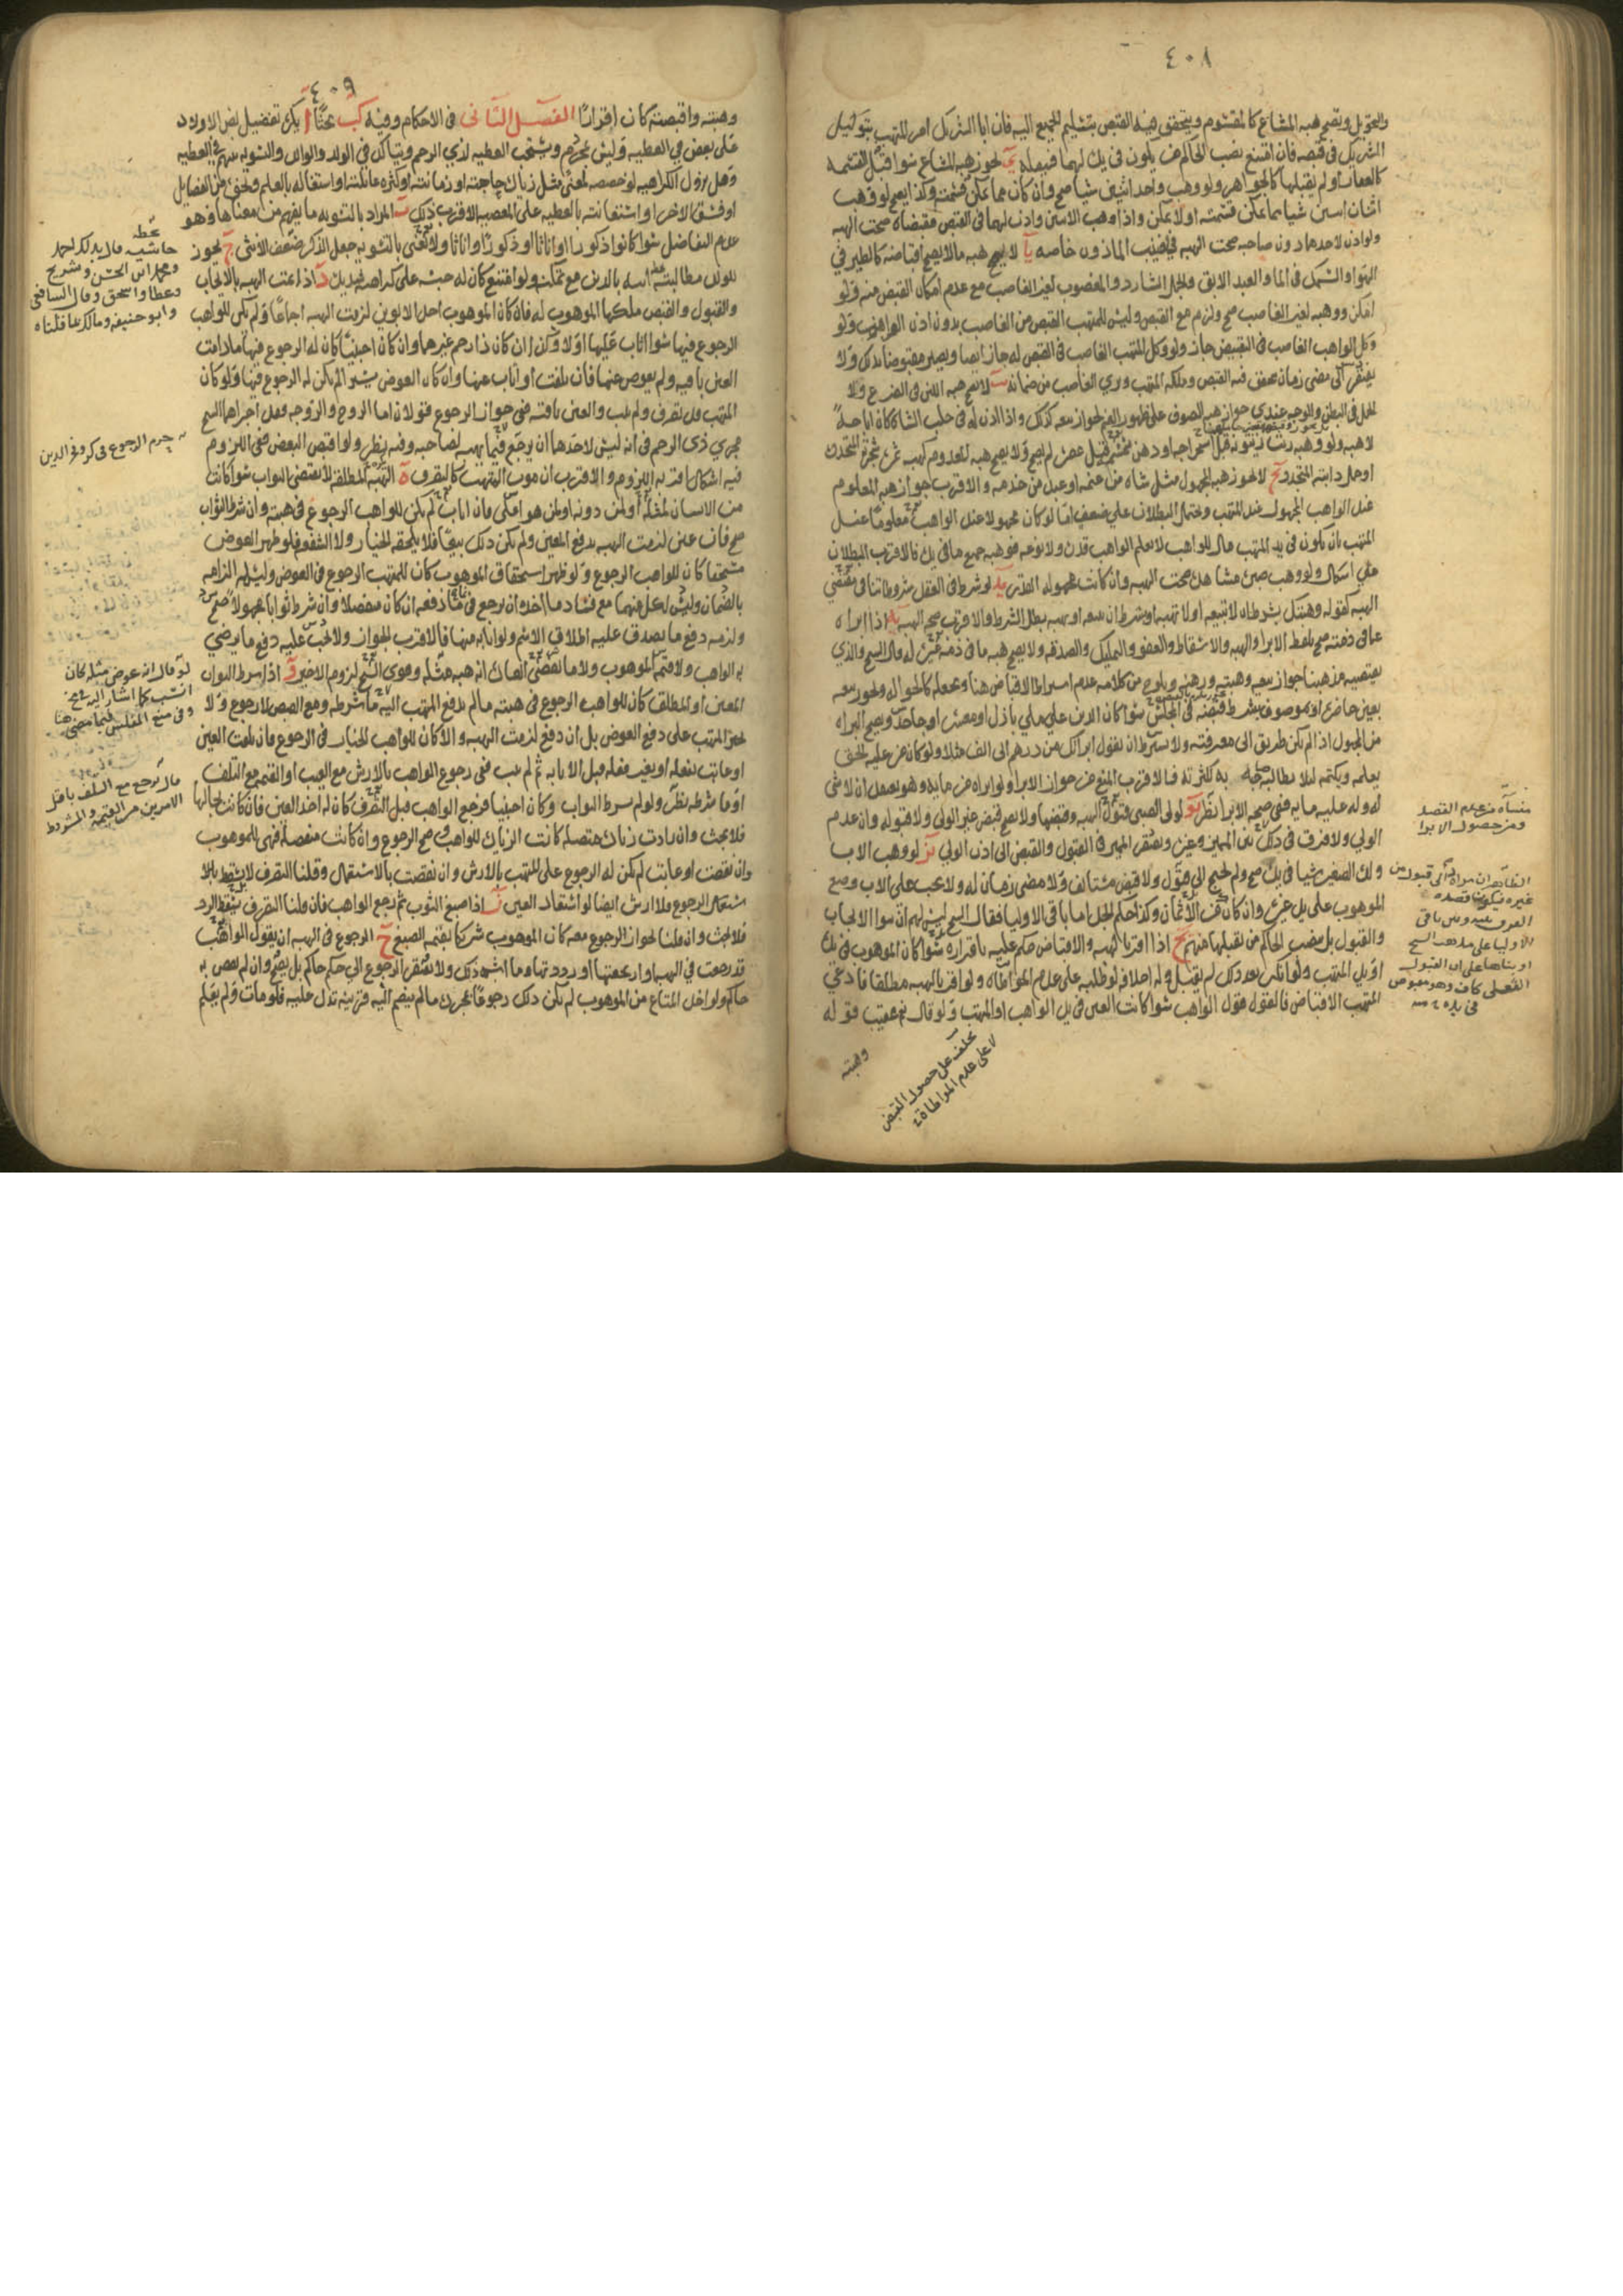 ٤٠٨
والتحويل وتصح هبه المشاع كالمقسوم ويتحقق فيه القبض بتسليم الجميع اليه فان ابا الشريك امر المتهب بتوكيل
الشريك في قبضه فان امتنع نصب الحاكم من يكون في يده لهما فينقله ي تجوز هبه المشاع سوا قبل القسمه
كالعقار او لم يقبلها كالجواهر ولو وهب واحد اثنين شيا صح وان كان مما يمكن قسمته وكذا يصح لو وهب
اثنان اثنين شيا مما يمكن قسمته اولا يمكن واذا وهب الاثنين واذن لهما في القبض فقبضاه صحت الهبه
ولو اذن لاحدهما دون صاحبه صحت الهبه في نصيب الماذون خاصه يا لا يصح هبه مالا يصح اقباضه كالطير في
الهوا والسمك في الما والعبد الابق والجمل الشارد والمغصوب لغير الغاصب مع عدم امكان القبض منه ولو
امكن ووهبه لغير الغاصب صح ولزم مع القبض وليس للمتهب القبض من الغاصب بدون اذن الواهب ولو
وكل الواهب الغاصب في التقبيض جاز ولو وكل المتهب الغاصب في القبض له جاز ايضا ويصير مقبوضا بذلك ولا
يفتقر الى مضى زمان يتحقق فيه القبض وملكه المتهب وبري الغاصب من ضمانه يب لا تصح هبه اللبن في الضرع ولا
الحمل في البطن والوجه عندي جواز هبه الصوف على ظهور الغنم لجواز بيعه كذلك واذا اذن له في حلب الشاه كان اباحه
لا هبه ولو وهبه زيت زيتونه قبل استخراجها ودهن سمسم قبل عصره لم يصح ولا يصح هبه المعدوم كهبه ثمره شجره المتجدده
او حمل دابته المتجدد يج لا تجوز هبه المجهول مثل شاه من غنمه او عبد من خدمه والاقرب جواز هبه المعلوم
عند الواهب المجهول عند المتهب ويحتمل البطلان على ضعف اما لو كان مجهولا عند الواهب معلوما عند
المتهب بان يكون في يد المتهب مال للواهب لا يعلم الواهب قدره ولا نوعه فوهبه جميع ما في يده فالاقرب البطلان
على اشكال ولو وهب صبره مشاهده صحت الهبه وان كانت مجهوله القدر يد لو شرط في العقد شروطا تنافي مقتضى
الهبه كقوله وهبتك بشرط ان لا تبيعه او لا تهبه او بشرط ان يبيعه او يهبه بطل الشرط والاقرب صحه الهبه يه اذا ابراه
عما في ذمته صح بلفظ الابرا والهبه والاسقاط والعفو والتمليك والصدقه ولا يصح هبه ما في ذمه غيره له قال الشيخ والذي
يقتضيه مذهبنا جواز بيعه وهبته ورهنه ويلوح من كلامه عدم اشتراط الاقباض هنا ويجعله كالحوال ويجوز بيعه
بعين حاضره او بموصوف بشرط قبضه في المجلس سوا كان الدين على ملي باذل او معسر او جاحد ويصح البراه
من المجهول اذا لم يكن طريق الى معرفته ولا يشترط ان يقول ابراتك من درهم الى الف مثلا ولو كان من عليه الحق
يعلمه ويكتمه لئلا يطالبه صاحبه به لكثرته فالاقرب المنع من جواز الابرا ولو ابراه من مايه وهو يعتقد ان لا شى
له وله عليه مايه ففي صحه الابرا نظر يو لولي الصبى قبول الهبه وقبضها ولا يصح قبض غير الولي ولا قبوله وان عدم
الولي ولا فرق في ذلك بين المميز وغيره ويفتقر المميز في القبول والقبض الى اذن الولي يز لو وهب الاب
ولده الصغير شيا في يده صح ولم يحتج الى قبول ولا قبض مستانف ولا مضى زمان له ولا يجب على الاب وضع
الموهوب على يد غيره وان كان من الاثمان وكذا حكم الجد اما باقي الاوليا فقال الشيخ ليس لهم ان يتولوا الايجاب
والقبول بل ينصب الحاكم من يقبلها منهم يح اذا اقر بالهبه والاقباض حكم عليه باقراره سوا كان الموهوب في يده
او يد المتهب ولو انكر بعد ذلك لم يقبل وله احلافه لو طلبه على عدم المواطاه ولو اقر بالهبه مطلقا فادعى
المتهب الاقباض فالقول قول الواهب سوا كانت العين في يد الواهب او المتهب ولو قال نعم عقيب قوله
وهبته
منشاه من عدم القصد
ومن حصول الابرا
الظاهر ان مراده تاتى قبول من
غيره
الاوليا على مذهب الشيخ
او بناها على ان القبول
الفعلى كاف وهو مقبوض
في يده
يحلف على حصول القبض
لا على عدم المواطاة
٤٠٩
وهبته واقبضته كان اقرارا الفصل الثانى في الاحكام وفيه كب بحثا ا يكره تفضيل بعض الاولاد
على بعض في العطيه وليس بمحرم ويستحب العطيه لذي الرحم ويتاكد في الولد والوالد والتسويه بينهم في العطيه
وهل يزول الكراهيه لو خصصه لمعنى مثل زياده حاجته او زمانته او كثره عائلته او اشتغاله بالعلم ونحوه من الفضايل
او فسق الاخر او استعانته بالعطيه على المعصيه الاقرب ذلك ب المراد بالتسويه ما يفهم من معناها وهو
عدم التفاضل سوا كانوا ذكورا او اناثا او ذكورا واناثا ولا نعنى بالتسويه جعل الذكر ضعف الانثى ج يجوز
للولد مطالبه ابيه بالدين مع تمكنه ولو امتنع كان له حبسه على كراهيه شديده د اذا تمت الهبه بالايجاب
والقبول والقبض ملكها الموهوب له فان كان الموهوب احد الابوين لزمت الهبه اجماعا ولم يكن للواهب
الرجوع فيها سوا اثاب عليها اولا وكذا ان كان ذا رحم غيرهما وان كان اجنبيا كان له الرجوع فيها مادامت
العين باقيه ولم يعوض عنها فان تلفت او اثاب عنها وان كان العوض يسيرا لم يكن له الرجوع فيها ولو كان
المتهب قد تصرف ولم يثب والعين باقيه ففي جواز الرجوع قولان اما الزوج والزوجه فهل اجراهما الشيخ
مجري ذى الرحم في انه ليس لاحدهما ان يرجع فيما يهبه لصاحبه وفيه نظر ولو اقبض البعض ففى اللزوم
فيه اشكال اقربه اللزوم والاقرب ان موت المتهب كالتصرف ه الهبه المطلقه لا يقتضى الثواب سوا كانت
من الانسان لمثله او لمن دونه او لمن هو اعلى فان اثاب لم يكن للواهب الرجوع في هبته وان شرط الثواب
صح فان عين لزمت الهبه بدفع المعين ولم يكن ذلك بيعا فلا يلحقه الخيار ولا الشفعه فلو ظهر العوض
مستحقا كان للواهب الرجوع ولو ظهر استحقاق الموهوب كان للمتهب الرجوع في العوض وليس له الزامه
بالضمان وليس لكل منهما مع فساد ما اخذه ان يرجع في نماء دفعه ان كان منفصلا وان شرط ثوابا مجهولا صح
ولزمه دفع ما يصدق عليه اطلاق الاسم ولو اثابه منها فالاقرب الجواز ولا يجب عليه دفع ما يرضي
به الواهب ولا قيمه الموهوب ولا ما تقتضى العاده انه هبه مثله وقوى الشيخ لزوم الاخير و اذا شرط الثواب
المعين او المطلق كان للواهب الرجوع في هبته مالم يدفع المتهب اليه ما شرطه ومع القبض لا رجوع ولا
يجبر المتهب على دفع العوض بل ان دفع لزمت الهبه والا كان للواهب الخيار في الرجوع فان تلفت العين
او عابت بفعله او بغير فعله قبل الاثابه ثم لم يثب ففي رجوع الواهب بالارش مع العيب او القيمه مع التلف
او ما شرطه نظر ولو لم يشرط الثواب وكان اجنبيا فرجع الواهب قبل التصرف كان له اخذ العين فان كانت بحالها
فلا بحث وان زادت زياده متصله كانت الزياده للواهب وصح الرجوع وان كانت منفصله فهي للموهوب
وان نقصت او عابت لم يكن له الرجوع على المتهب بالارش وان نقصت بالاستعمال وقلنا التصرف لا يسقط
الرجوع فلا ارش ايضا لو استعاد العين ز اذا صبغ الثوب ثم رجع الواهب فان قلنا التصرف يسقط الرد
فلا بحث وان قلنا بجواز الرجوع معه كان الموهوب شريكا بقيمه الصبغ ح الرجوع في الهبه ان يقول الواهب
قد رجعت في الهبه او ارتجعتها او رددتها وما اشبه ذلك ولا يفتقر الرجوع الى حكم حاكم بل يصح وان لم يقض به
حاكم ولو اخذ المتاع من الموهوب لم يكن ذلك رجوعا بمجرده مالم ينضم اليه قرينه تدل عليه فلو مات ولم يعلم
حاشيه قال بذلك احمد
ومحمد ابن الحسن وشريح
وعطا واسحق وقال الشافعى
وابو حنيفه ومالك بما قلناه
حرم الرجوع في كره فخر الدين
لو قال انه عوض مثله كان
انسب كما اشار اليه
وفي منع المفلس فيما مضى هنا
قال يرجع مع التلف باقل
الامرين من القيمه والمشروط